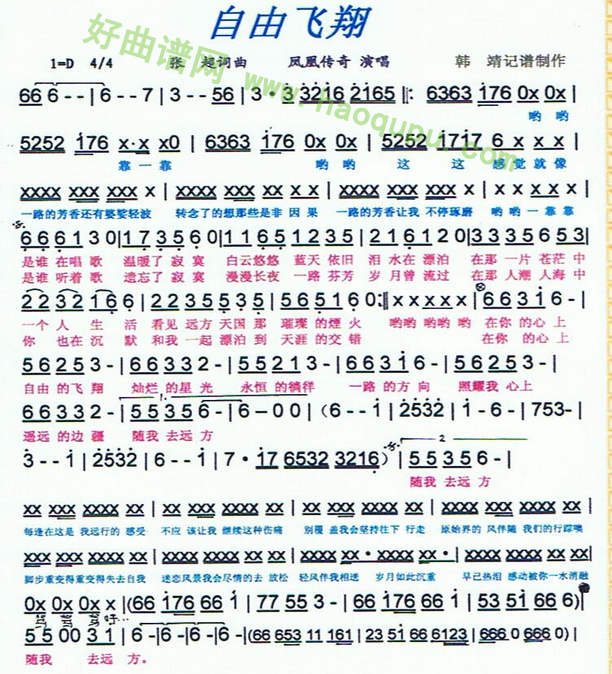 自由飞翔
1=D 4/4 张 超词曲 凤凰传奇 演唱 韩 靖记谱制作
好曲谱网
www.haoqupu.com
66 6 - - | 6 - - 7 | 3 - - 56 | 3 · 3 3216 2165 |: 6363 176 0x 0x |
哟 哟
5252 176 x·x x0 | 6363 176 0x 0x | 5252 1717 6 x x | x x x x |
靠 一 靠 哟 哟 这 这 感 觉 就 像
xxxx xxx xxx x | xxxx xxx xxx x x | xxxx xxx xxx x | x x x x |
一路的芳香还有婆娑轻波 转念了的想那些是非 因 果 一路的芳香让我 不停琢磨 哟 哟 一 靠 靠
6 6 6 1 3 0 | 1 7 3 5 6 0 | 1 1 6 5 1235 | 2 1 6 1 2 0 | 3 3 3 5 6 5 3 |
是谁 在唱 歌 温暖了 寂 寞 白云悠悠 蓝天 依旧 泪 水在 漂泊 在那 一片 苍茫 中
是谁 听着 歌 遗忘了 寂 寞 漫漫长夜 一路 芬芳 岁 月曾 流过 在那 人潮 人海 中
2 2 3 2 1 6 6 | 3 2 3 5 5 3 5 | 5 6 5 1 6 0 :| x x x x x | 6 6 3 1 6 - |
一个 人 生 活 看见 远方 天国 那 璀璨 的 煙 火 哟哟 哟哟 哟 在你 的心 上
你 也在 沉 默 和我 一起 漂泊 到 天涯 的 交 错 在你 的 心上
5 6 2 5 3 - | 6 6 3 3 2 - | 5 5 3 5 2 1 3 - | 6 6 3 1 6 - | 5 6 2 5 3 - |
自由 的飞 翔 灿烂 的星 光 永恒 的徜徉 一路 的方 向 照耀我 心上
6 6 3 3 2 - | 5 5 3 5 6 - | 6 - 0 0 | (6 - - 1 | 2532 | 1 - 6 - | 753- |
遥远 的边 疆 随我 去远 方
3 - - 1 | 2532 | 6 - - - | 7 · 17 6532 3216 ) | 5 5 3 5 6 - |
随我 去远 方
xx xxx xxxx xx | xx xxx xxxx xx | xx xxx xxxx xx | xxx xxx xxxx xx |
每逢在这是 我远行的 感受 不应 该让我 继续这种伤痛 别覆 盖我会坚持往下 行走 原始界的 风伴随 我们的行踪噢
xxx xxx xxxx xx | xxx xxx xxxx xx | xxx xx· xxxx xx· | xxx xxx xxxx xx |
脚步重变得重变得失去自我 迷恋风景我会尽情的去 放松 轻风伴我相送 岁月如此沉重 早已热泪 感动被你一水消融
0x 0x x x |(66 176 66 1 | 77 55 3 - | 66 176 66 1 | 53 51 66 6) |
5 5 00 3 1 | 6 -| 6 -| 6 - |(66 653 11 111 161 | 23 51 66 6123 | 666 0 666 0) |
随我 去远 方。